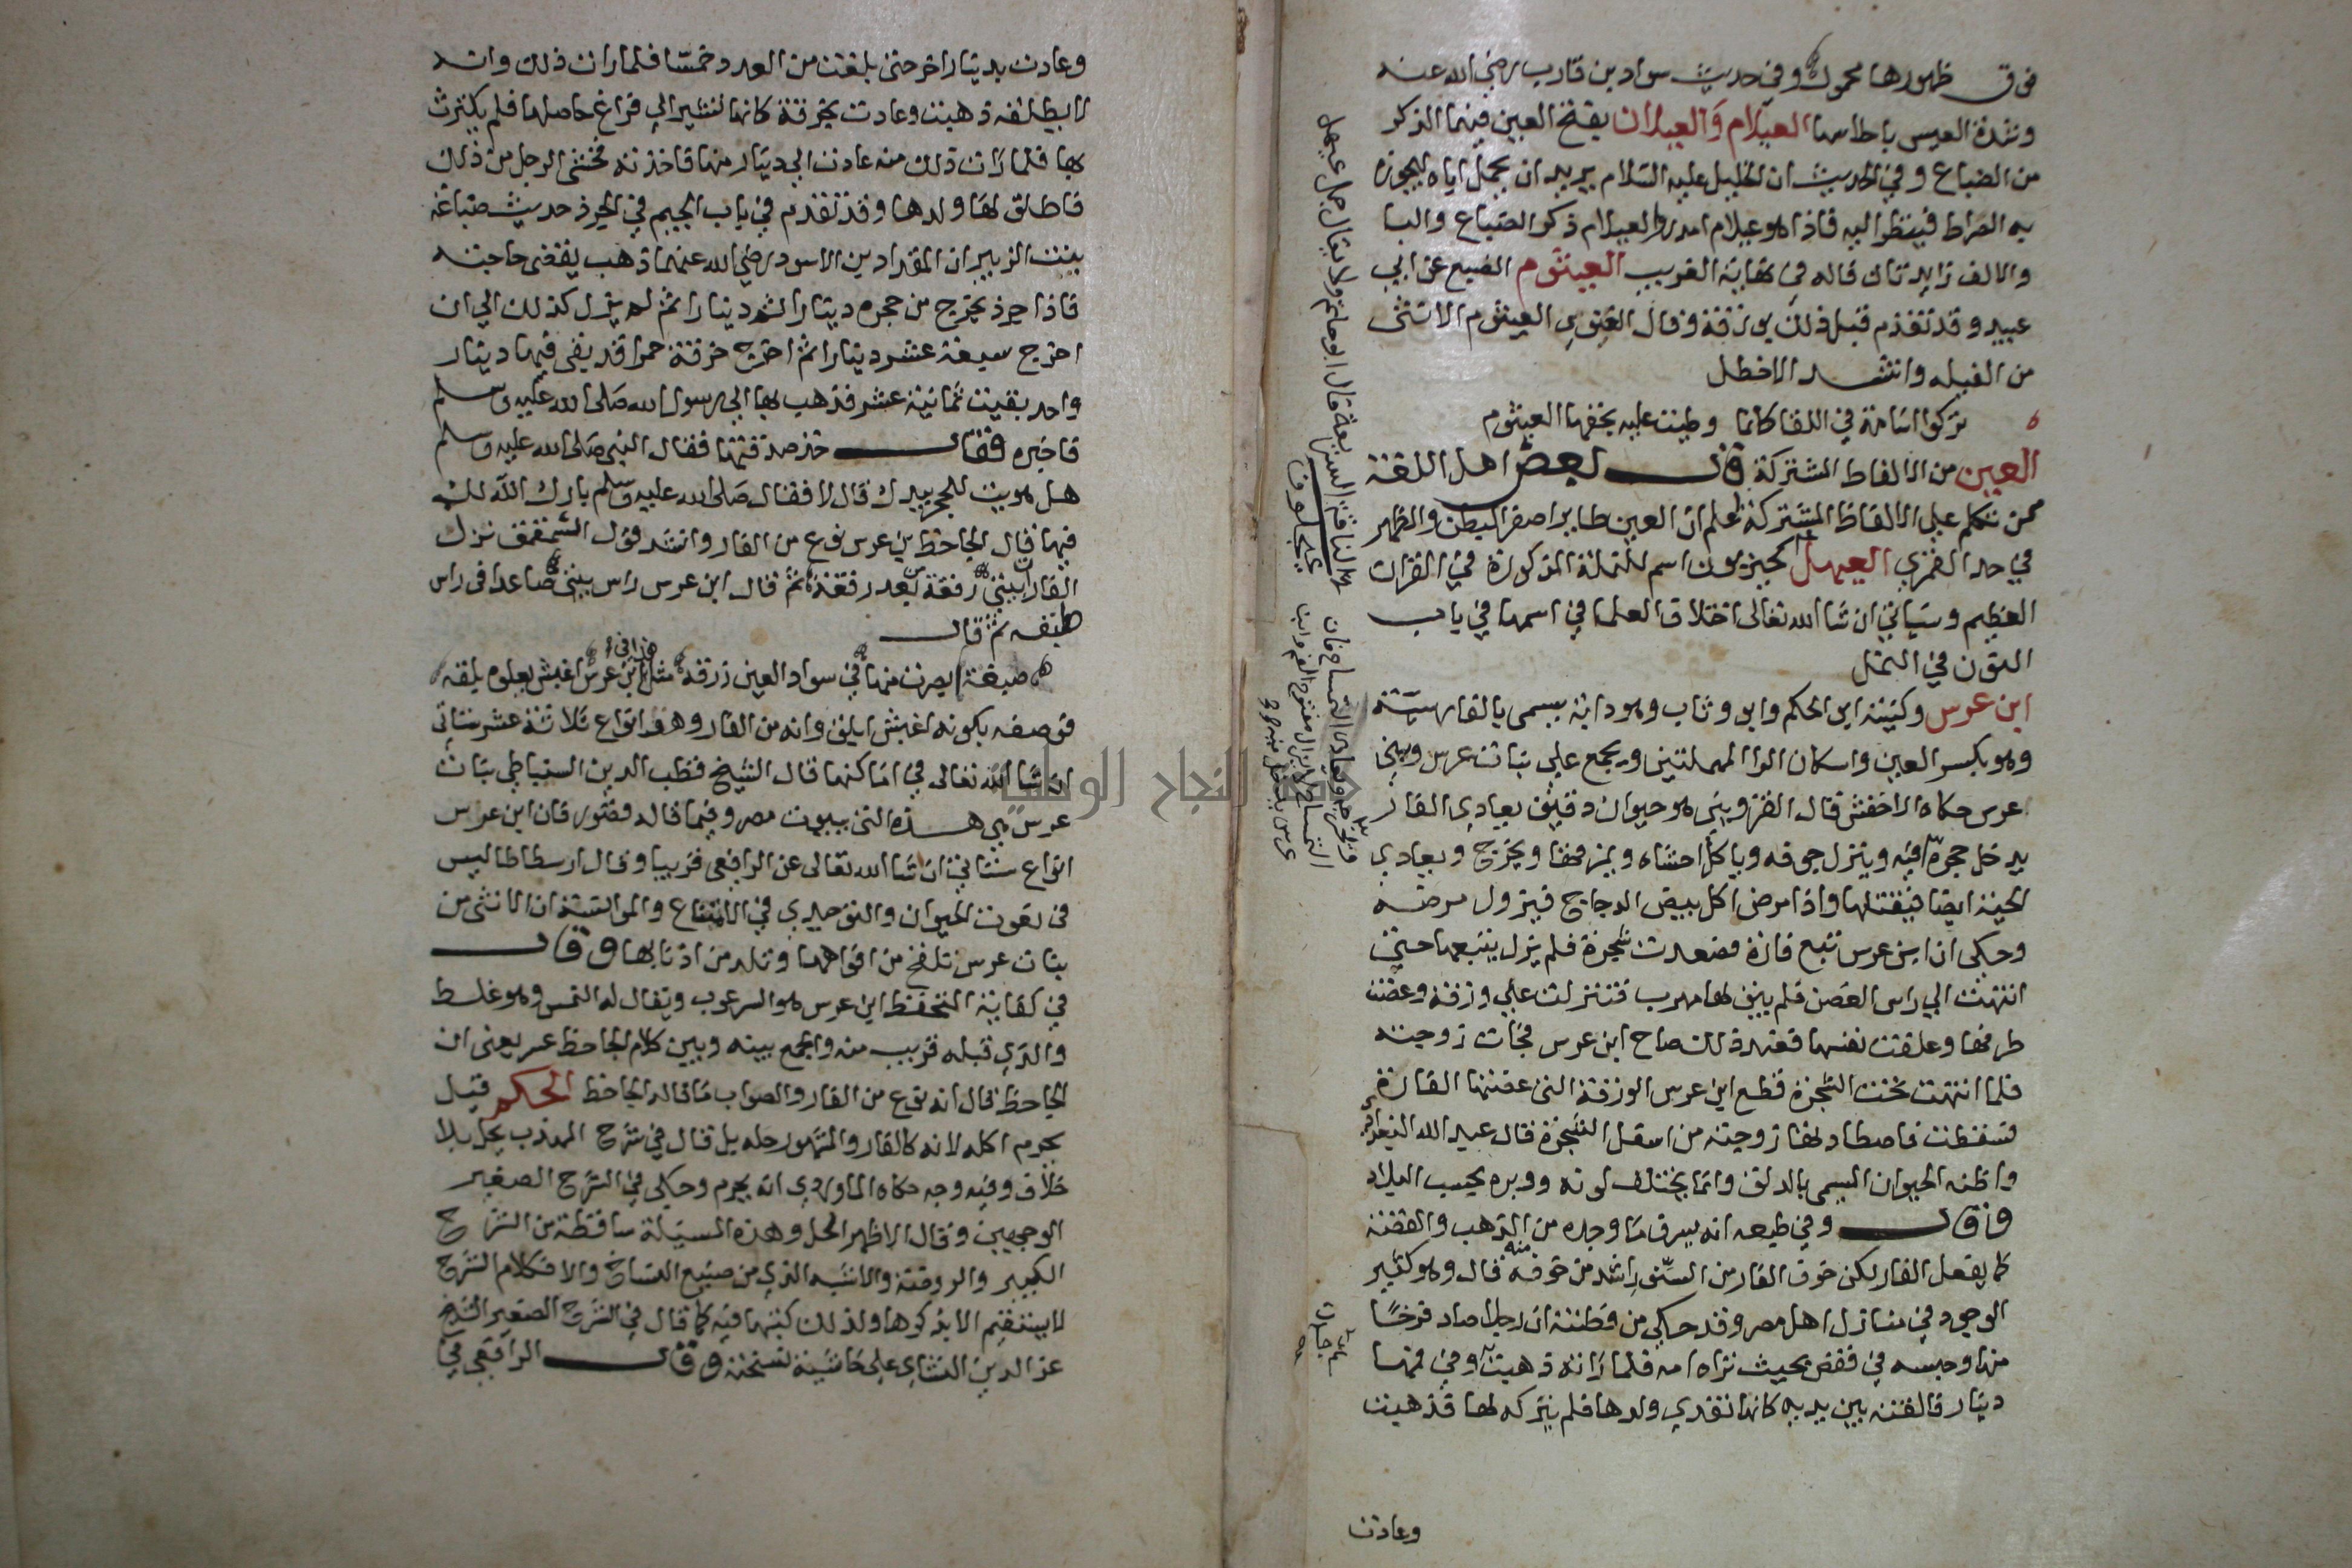 فوق ظهورها محمول وفي حديث سواد بن قارب رضي الله عنه
وشدة العيس باحلاسها العيلام والعيلان بفتح العين فيهما الذكر
من الضباع وفي الحديث ان الخليل عليه السلام يريد ان يحمل اباه ليجوز
به الصراط فينظر اليه فاذا هو عيلام امدر والعيلام ذكر الضباع واليا
والالف زايدتان قاله في نهاية الغريب العيثوم الضبع عن ابي
عبيد وقد تقدم قبل ذلك بورقة وقال الغنوي العيثوم الانثى
من الفيله وانشد الاخطل
تركوا اسامة في اللقا كانما وطيت عليه بخفها العيثوم
العين من الالفاظ المشتركة قال بعض اهل اللغة
ممن تكلم علي الالفاظ المشتركة اعلم ان العين طاير اصفر البطن والظهر
في حد القمري العيهل كحيزبون اسم للنملة المذكورة في القران
العظيم وسياتي ان شا الله تعالى اختلاف العلما في اسمها في باب
النون في النمل
ابن عرس وكنيته ابن الحكم وابو وثاب وهو دابة يسمى بالفارسية
وهو بكسر العين واسكان الرا المهملتين ويجمع علي بنات عرس وبني
عرس حكاه الاخفش قال القزويني هو حيوان دقيق يعادي الفار
يدخل حجره فيه وينزل جوفه وياكل احشاه ويمزقها ويخرج ويعادي
الحية ايضا فيقتلها واذا مرض اكل بيض الدجاج فيزول مرضه
وحكي ان ابن عرس تبع فارة فصعدت شجرة فلم يزل يتبعها حتي
انتهت الي راس الغصن فلم يبق لها مهرب فنزلت علي ورقة وعضت
طرفها وعلقت نفسها فعند ذلك صاح ابن عرس فجات زوجته
فلما انتهت تحت الشجرة قطع ابن عرس الورقة التي عضتها الفارة
فسقطت فاصطادها زوجته من اسفل الشجرة قال عبد الله البغدادي
واظنه الحيوان المسمى بالدلق وانما يختلف لونه ووبره بحسب البلاد
وقال وفي طبعه انه يسرق ما وجده من الذهب والفضة
كما يفعل الفار لكن خوف الفار من السنور اشد من خوفه منه قال وهو كثير
الوجود في منازل اهل مصر وقد حكي من فطنته ان رجلا صاد فرخا
منها وحبسه في قفص بحيث تراه امه فلما راته ذهبت وفي فمها
دينار فالقته بين يديه كانها تفدي ولدها فلم يتركه لها فذهبت
وعادت
وعادت بدينار اخر حتى بلغت من العدد خمسا فلما رات ذلك وانه
لا يطلقه ذهبت وعادت بخرقة كانها تشير الي فراغ حاصلها فلم يكترث
بها فلما رات ذلك منه عادت الي دينار منها فاخذته فخشي الرجل من ذلك
فاطلق لها ولدها وقد تقدم في باب الجيم في الجرذ حديث ضباعة
بنت الزبير ان المقداد بن الاسود رضي الله عنهما ذهب يقضي حاجته
فاذا جرذ يخرج من حجره دينارا ثم دينارا ثم لم يزل كذلك الي ان
اخرج سبعة عشر دينارا ثم اخرج خرقة حمرا قد بقي فيها دينار
واحد بقيت ثمانية عشر فذهب بها الي رسول الله صلى الله عليه وسلم
فاخبره فقال خذ صدقتها فقال النبي صلى الله عليه وسلم
هل هويت للحجر بيدك قال لا فقال صلى الله عليه وسلم بارك الله لك
فيها قال الجاحظ بن عرس نوع من الفار وانشد قول الشمقمق نزل
الفار ببيتي رفقة بعد رفقة ثم قال ابن عرس راس بيتي صاعدا في راس
طبقه ثم قال
صبغة ابصرت منها في سواد العين زرقه مثل هذا في ابن عرس اغبش يعلوه بلقه
فوصفه بكونه اغبش ابلق وانه من الفار وهو انواع ثلاثة عشر ستاتي
ان شا الله تعالى في اماكنها قال الشيخ قطب الدين السنباطي بنات
عرس هي هذه التي ببيوت مصر وفيما قاله فتور فان ابن عرس
انواع ستاتي ان شا الله تعالى عن الرافعي قريبا وقال ارسطاطاليس
في نعوت الحيوان والتوحيدي في الامتاع والموانسة ان الانثى من
بنات عرس تلقح من افواهها وتلد من اذنابها وقال
في كفاية المتحفظ ابن عرس هو السرعوب ويقال له النمس وهو غلط
والذي قبله قريب منه والجمع بينه وبين كلام الجاحظ عسر يعني ان
الجاحظ قال انه نوع من الفار والصواب ما قاله الجاحظ الحكم قيل
يحرم اكله لانه كالفار والمشهور حله بل قال في شرح المهذب يحل بلا
خلاف وفيه وجه حكاه الماوردي انه يحرم وحكي في الشرح الصغير
الوجهين وقال الاظهر الحل وهذه المسيلة ساقطة من الشرح
الكبير والروضة والاشبه الذي من صنيع النساخ والا فكلام الشرح
لا يستقيم الا بذكرها ولذلك كتبها فيه كما قال في الشرح الصغير الشيخ
عز الدين النشاي علي حاشية نسخته وقال الرافعي في
جامعة النجاح الوطنية